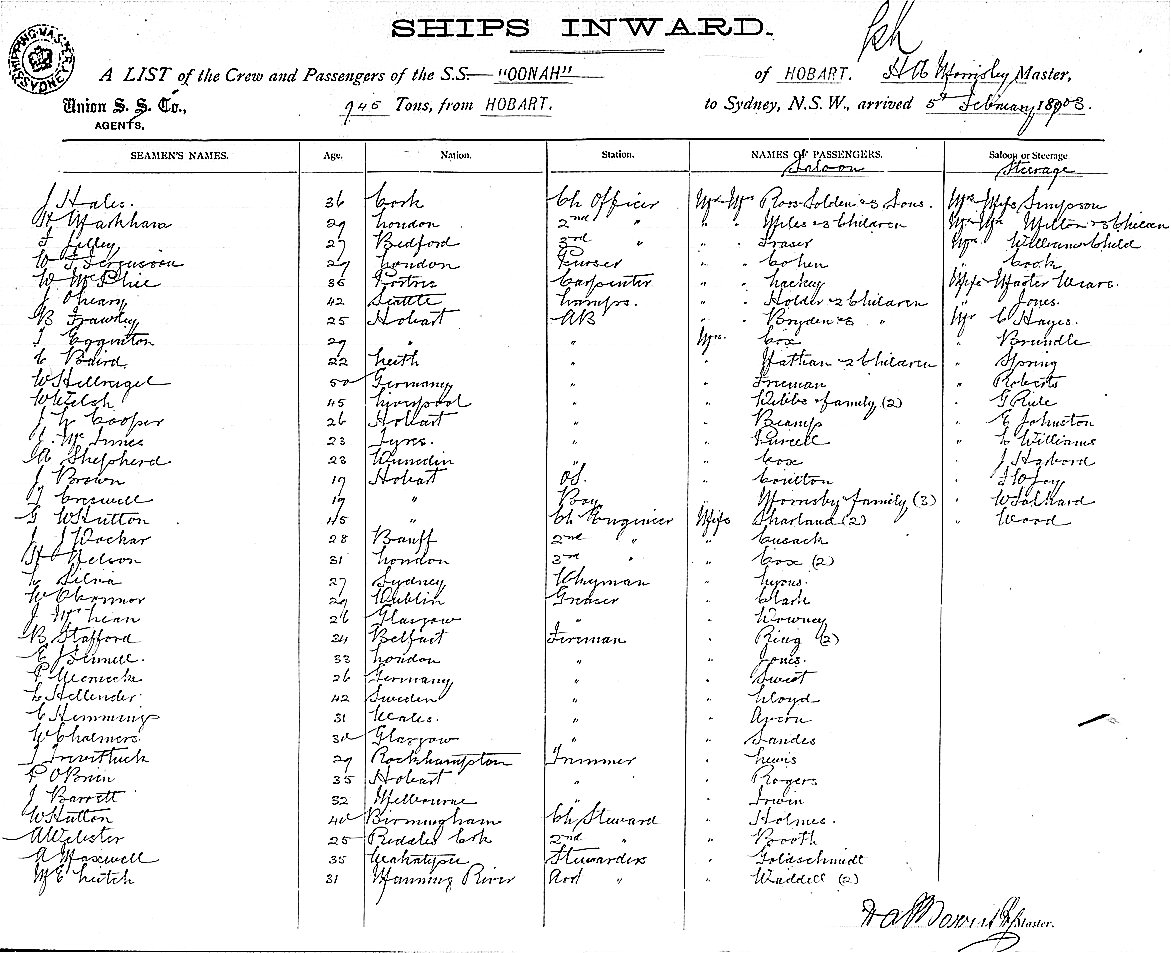 SHIPS INWARD.
SHIPPING MASTER
SYDNEY
A LIST of the Crew and Passengers of the S.S. "OONAH" of HOBART. Master,
Union S. S. Co., 945 Tons, from HOBART. to Sydney, N.S.W., arrived 5th February 1903.
AGENTS,
SEAMEN'S NAMES. Age. Nation. Station. NAMES OF PASSENGERS. Saloon or Steerage
Saloon Steerage
J Hales. 36 Cork Ch Officer Mr Mrs Sons. Mrs Miss Simpson
H Markham 29 London 2nd " " " Miles & 3 Children Mr Mrs Milton & 3 Children
F Lilley 27 Bedford 3rd " " " Fraser Mrs Williams Child
W F Fergusson 29 London Purser " " Cohen " Cook
W McPhie 36 Carpenter " " Mackay Miss Master
J Oheary 42 Seattle Lamps. " " Holder & 2 Children " Jones.
B Frawley 25 Hobart AB " " Bryden & 3 " Mr C Hayes.
J Egginton 29 " " Mrs Cox " Brundle
C Baird 22 Leith " " Nathan & 2 Children " Spring
W 50 Germany " " Freeman " Roberts
W Welsh 45 Liverpool " " Webbs & family (2) " G Rule
J W Cooper 26 Hobart " " " C Johnston
J. McInnes 23 " " Purcell " L Williams
A Shepherd 23 Dunedin " " Cox " J
J Brown 19 Hobart OS. " Coulton "
Creswell 19 " Boy " Hornsby family (3) "
G W Hutton 45 " Ch Engineer Miss Sharland (2) " Wood
J 28 Banff 2nd " " Cusack
H Nelson 31 London 3rd " " Cox (2)
C Silva 27 Sydney " Lyons.
W OConnor 29 Dublin Greaser " Clark
J McLean 26 Glasgow " " Downey
B Stafford 24 Belfast Fireman " Ring (2)
E 33 London " " Jones.
P 26 Germany " " Sweet
L Hellender 42 Sweden " " Lloyd
C Hemmings 31 Wales. " "
W Chalmers 30 Glasgow " " Sandes
J 29 Rockhampton Trimmer " Lewis
P OBrien 35 Hobart " " Rogers
J Barrett 32 Melbourne " " Irwin
W Hutton 40 Birmingham Ch Steward " Holmes.
A Webster 25 2nd " " Booth
A Maxwell 35 Stewardess " Goldschmidt
M E Leitch 31 Manning River " " Waddell (2)
Master.